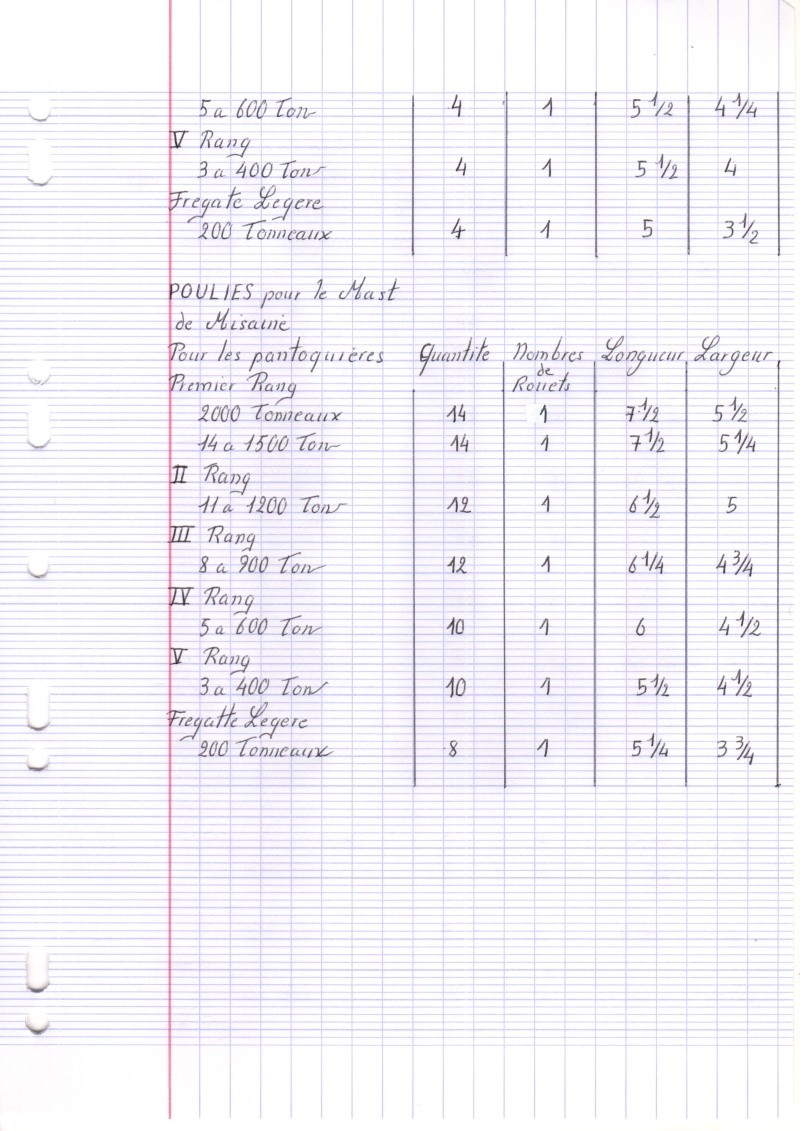 5 a 600 Ton 4 1 5 1/2 4 1/4
V Rang
3 a 400 Ton 4 1 5 1/2 4
Fregate Legere
200 Tonneaux 4 1 5 3 1/2
POULIES pour le Mast
de Misaine
Pour les pantoquières Quantite Nombres de Rouets Longueur Largeur
Premier Rang
2000 Tonneaux 14 1 7 1/2 5 1/2
14 a 1500 Ton 14 1 7 1/2 5 1/4
II Rang
11 a 1200 Ton 12 1 6 1/2 5
III Rang
8 a 900 Ton 12 1 6 1/4 4 3/4
IV Rang
5 a 600 Ton 10 1 6 4 1/2
V Rang
3 a 400 Ton 10 1 5 1/2 4 1/2
Fregatte Legere
200 Tonneaux 8 1 5 1/4 3 3/4